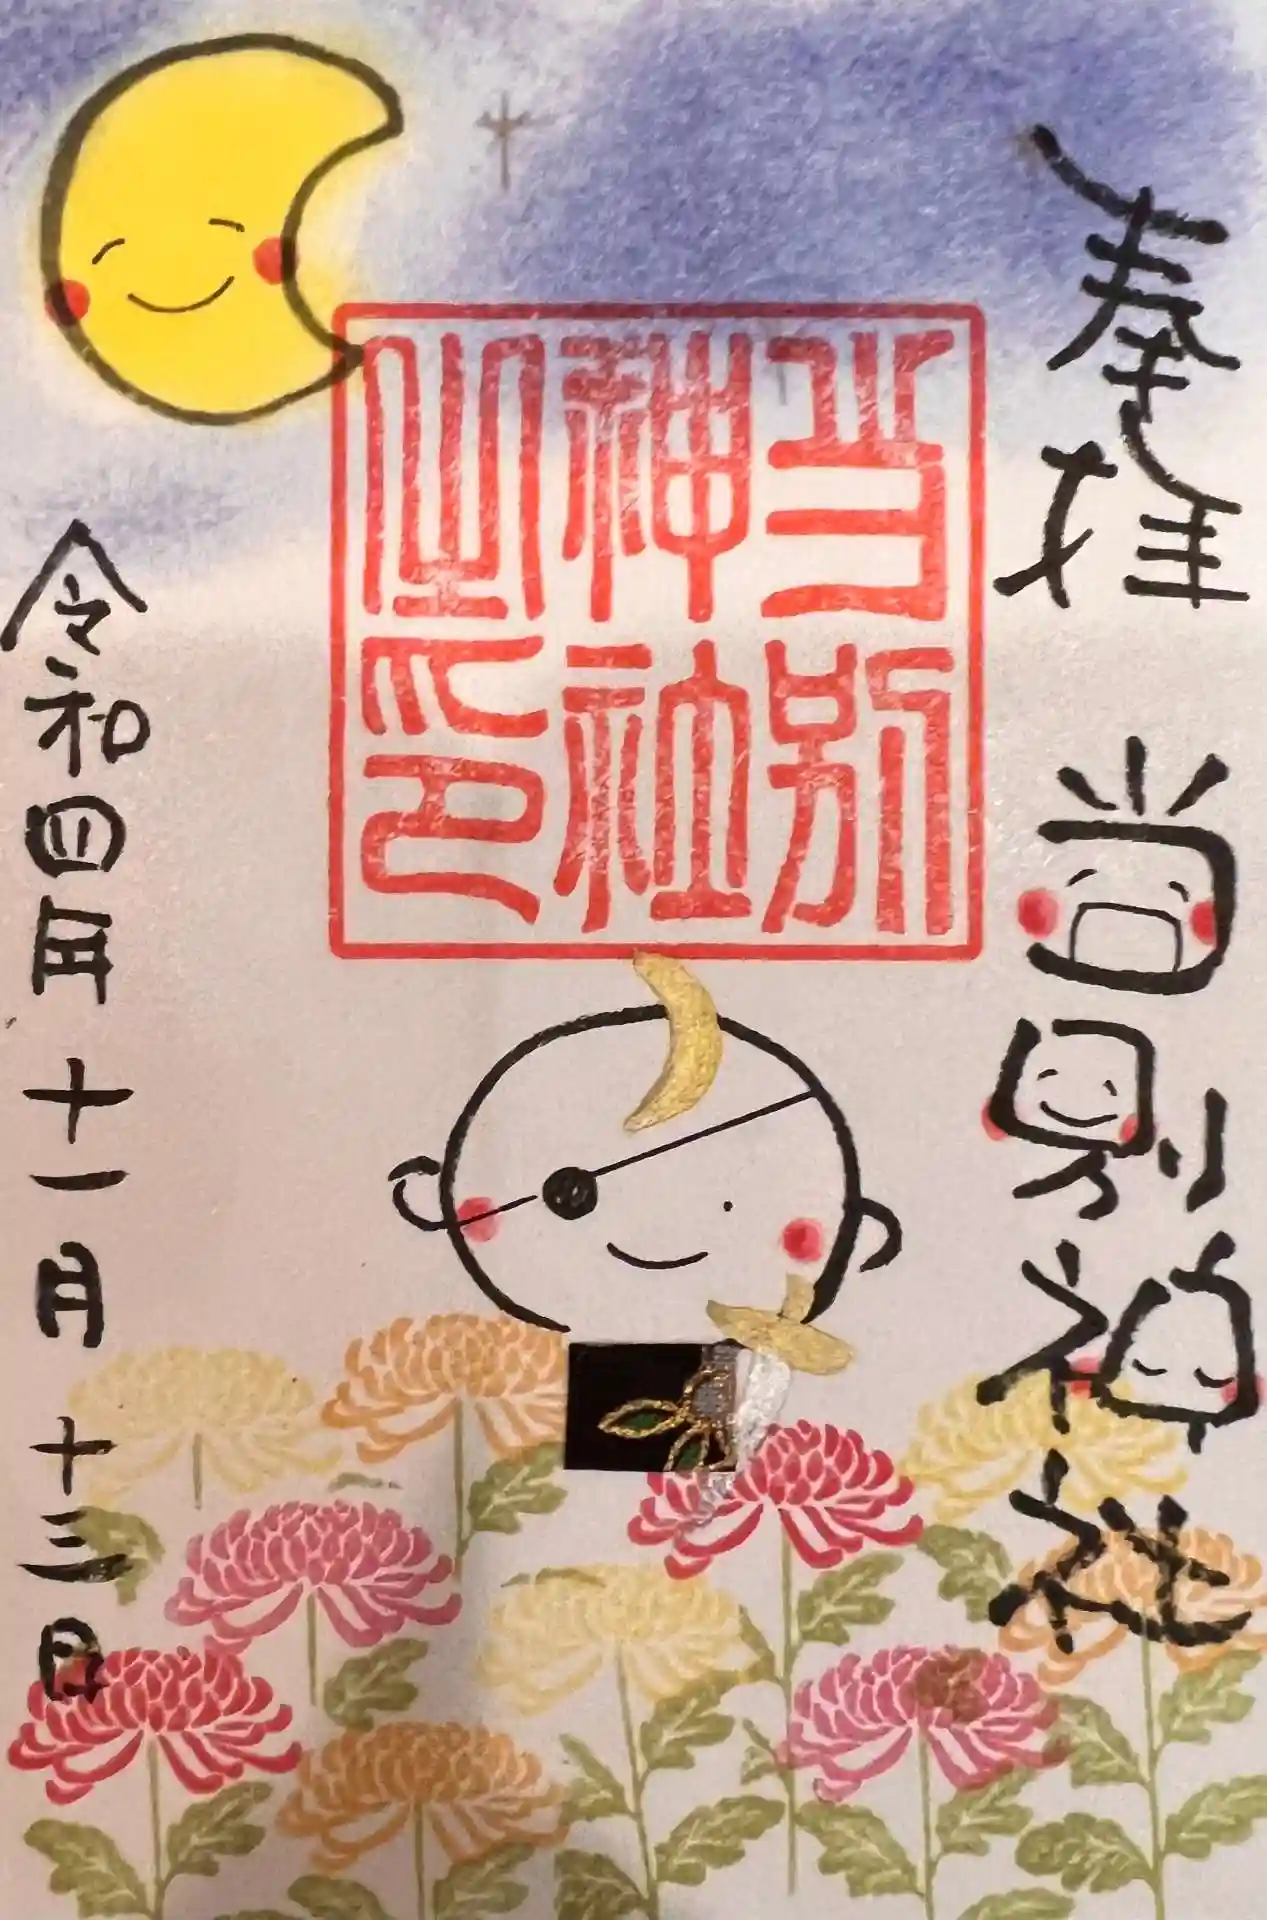 奉拝
当別神社
当別
神社
之印
令和四年十一月十三日